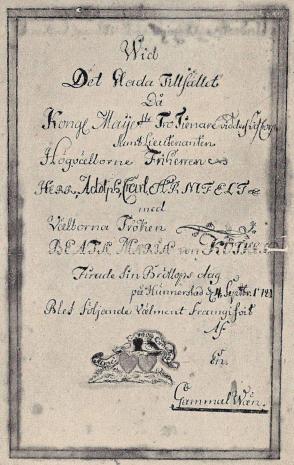 Wid
Det Glada Tillfället
Då
Kongl Maij:tts Tro Tienare
samt Lieutenanten
Högvälborne Friherren
HERR, Adolph Carl ARMFELT
med
Välborna Fröken
BEATA MARIA von
Firade Sin Bröllops dag
på Hunnerstad d. 14 Septbr:
Blef följande Välment Framgifvit
Af
En
Gammal Wän.